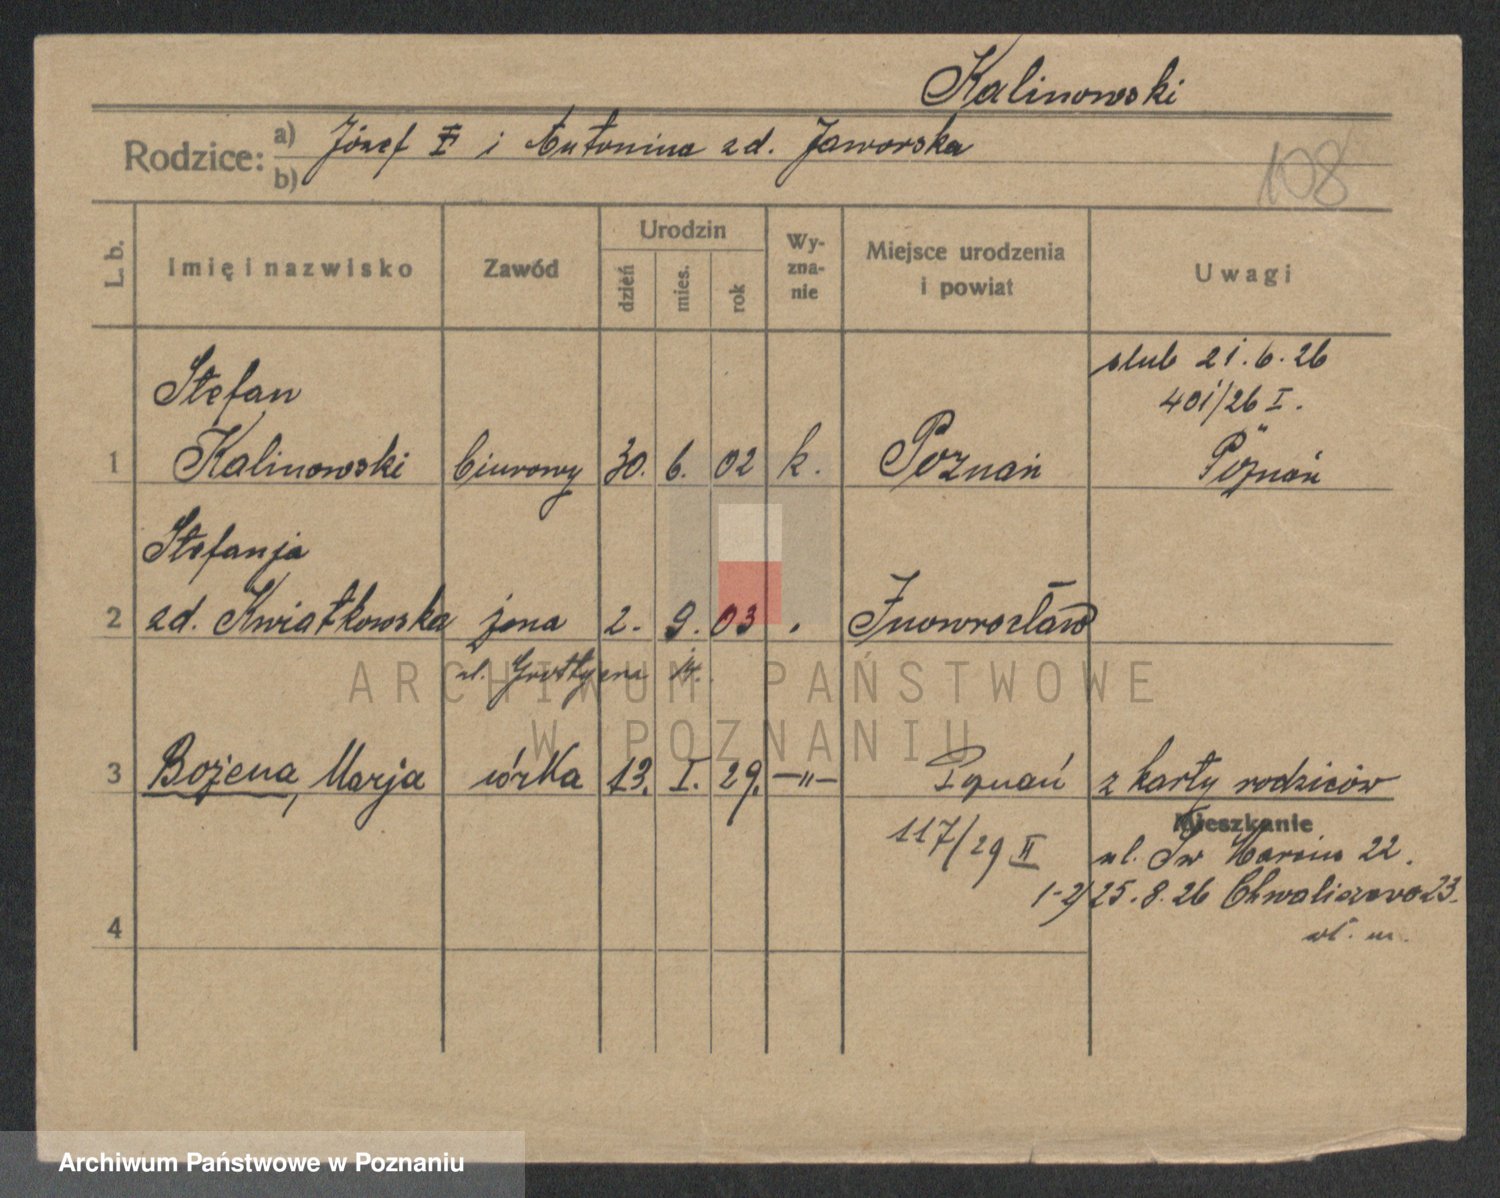 Kalinowski
Rodzice: a) b) Józef i Antonina zd. Jaworska
108
L. b.
Imię i nazwisko
Zawód
Urodzin
dzień
mies.
rok
Wy-
zna-
nie
Miejsce urodzenia
i powiat
Uwagi
ślub 21.6.26
401/26 I.
Stefan
1 Kalinowski biurowy 30. 6. 02 k. Poznań Poznań
Stefanja
2 zd. Kwiatkowska żona 2. 9. 03 Inowrocław
ul.
ARCHIWUM PAŃSTWOWE
W POZNANIU
3 Bożena, Marja córka 13. I. 29. —"— Poznań z karty rodziców
Mieszkanie
117/29 II
ul. Św Marcin 22.
1-2/ 25.8.26 Chwaliszewo 23.
4
Archiwum Państwowe w Poznaniu